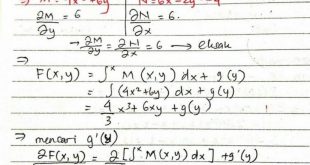 ⇒ M = 4x² + 6y | N = 6x - 2y - 4
∂M/∂y = 6 | ∂N/∂x = 6.
→ ∂M/∂y = ∂N/∂x = 6 → eksak
⇒
F(x,y) = ∫ˣ M (x,y) dx + g(y)
= ∫(4x² + 6y) dx + g(y)
= 4/3 x³ + 6xy + g(y)
⇒ mencari g'(y)
∂F(x,y) = ∂ [∫ˣ M(x,y) dx] + g'(y)